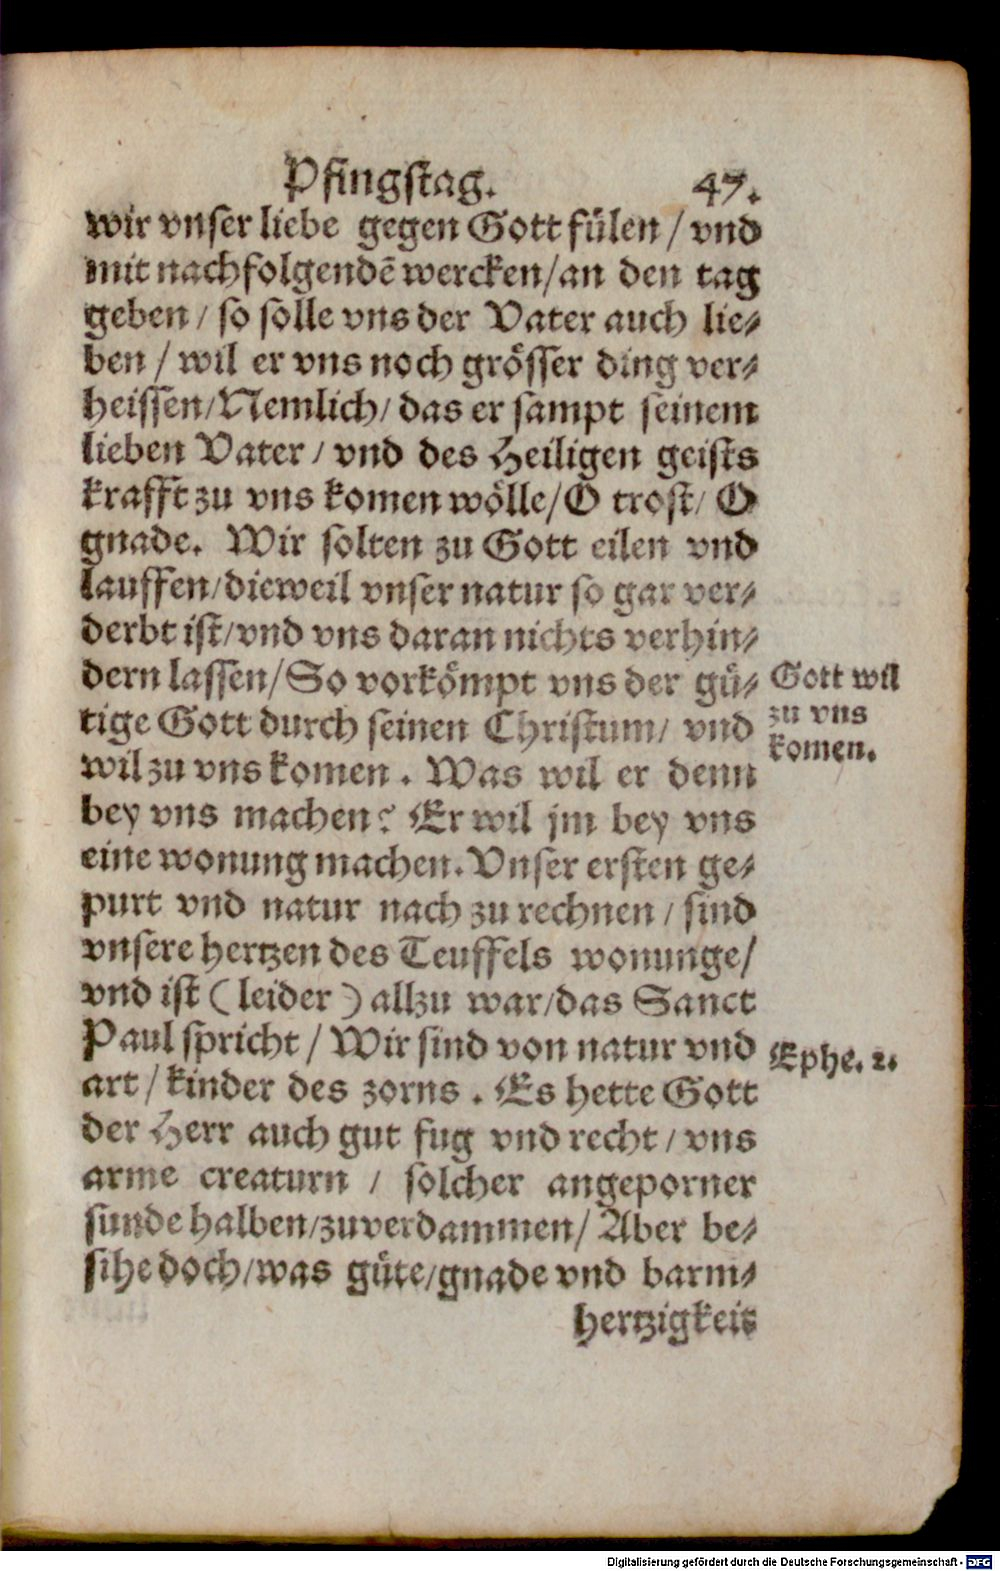 Pfingstag. 47.
wir vnser liebe gegen Gott fülen / vnd
mit nachfolgendē wercken/an den tag
geben / so solle vns der Vater auch lie-
ben / wil er vns noch grösser ding ver-
heissen/Nemlich/ das er sampt seinem
lieben Vater / vnd des Heiligen geists
krafft zu vns komen wölle/O trost/ O
gnade. Wir solten zu Gott eilen vnd
lauffen/dieweil vnser natur so gar ver-
derbt ist/vnd vns daran nichts verhin-
dern lassen/So vorkömpt vns der gü-
tige Gott durch seinen Christum/ vnd
wil zu vns komen . Was wil er denn
bey vns machen? Er wil jm bey vns
eine wonung machen. Vnser ersten ge-
purt vnd natur nach zu rechnen / sind
vnsere hertzen des Teuffels wonunge/
vnd ist ( leider ) allzu war/das Sanct
Paul spricht / Wir sind von natur vnd
art / kinder des zorns . Es hette Gott
der Herr auch gut fug vnd recht / vns
arme creaturn / solcher angeporner
sunde halben/zuverdammen/ Aber be-
sihe doch/was güte/gnade vnd barm-
hertzigkeit
Gott wil
zu vns
komen.
Ephe. 2.
Digitalisierung gefördert durch die Deutsche Forschungsgemeinschaft - DFG